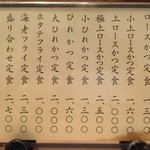 ロースかつ定食
小ロースかつ定食
上ロースかつ定食 二、〇〇〇
極上ロースかつ定食 二、五
小ひれかつ定食 一、三〇
ひれかつ定食 一、六〇〇
大ひれかつ定食 二、〇〇〇
ホタテフライ定食 二、〇〇〇
海老フライ定食 二、一〇〇
盛り合わせ定食 二、七〇〇